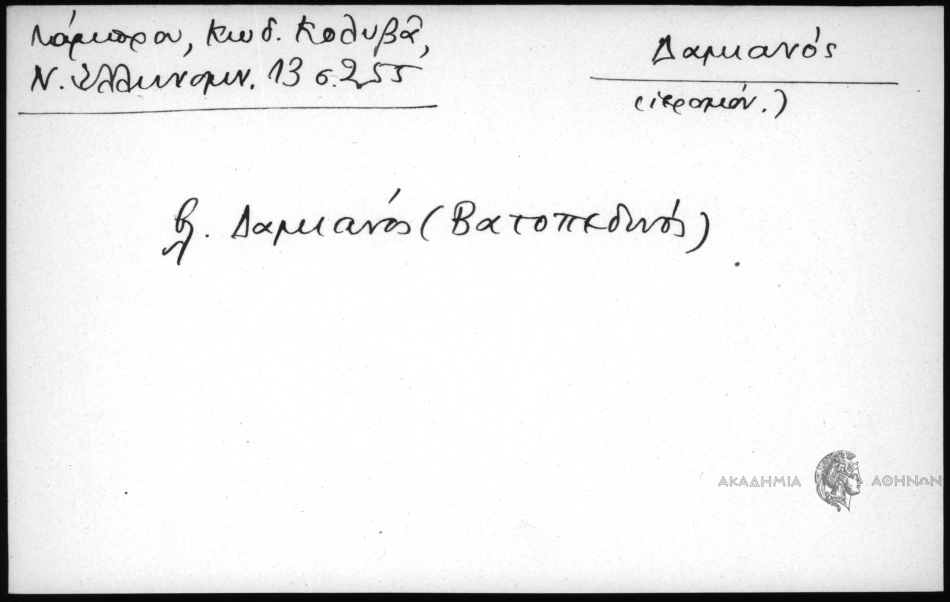 Λάμπρου, Κωδ. Κολυβᾶ,
Ν. Ἑλληνομν. 13 σ. 255
Δαμιανός
(ἱερομόν.)
βλ. Δαμιανός (Βατοπεδινός)
ΑΚΑΔΗΜΙΑ ΑΘΗΝΩΝ